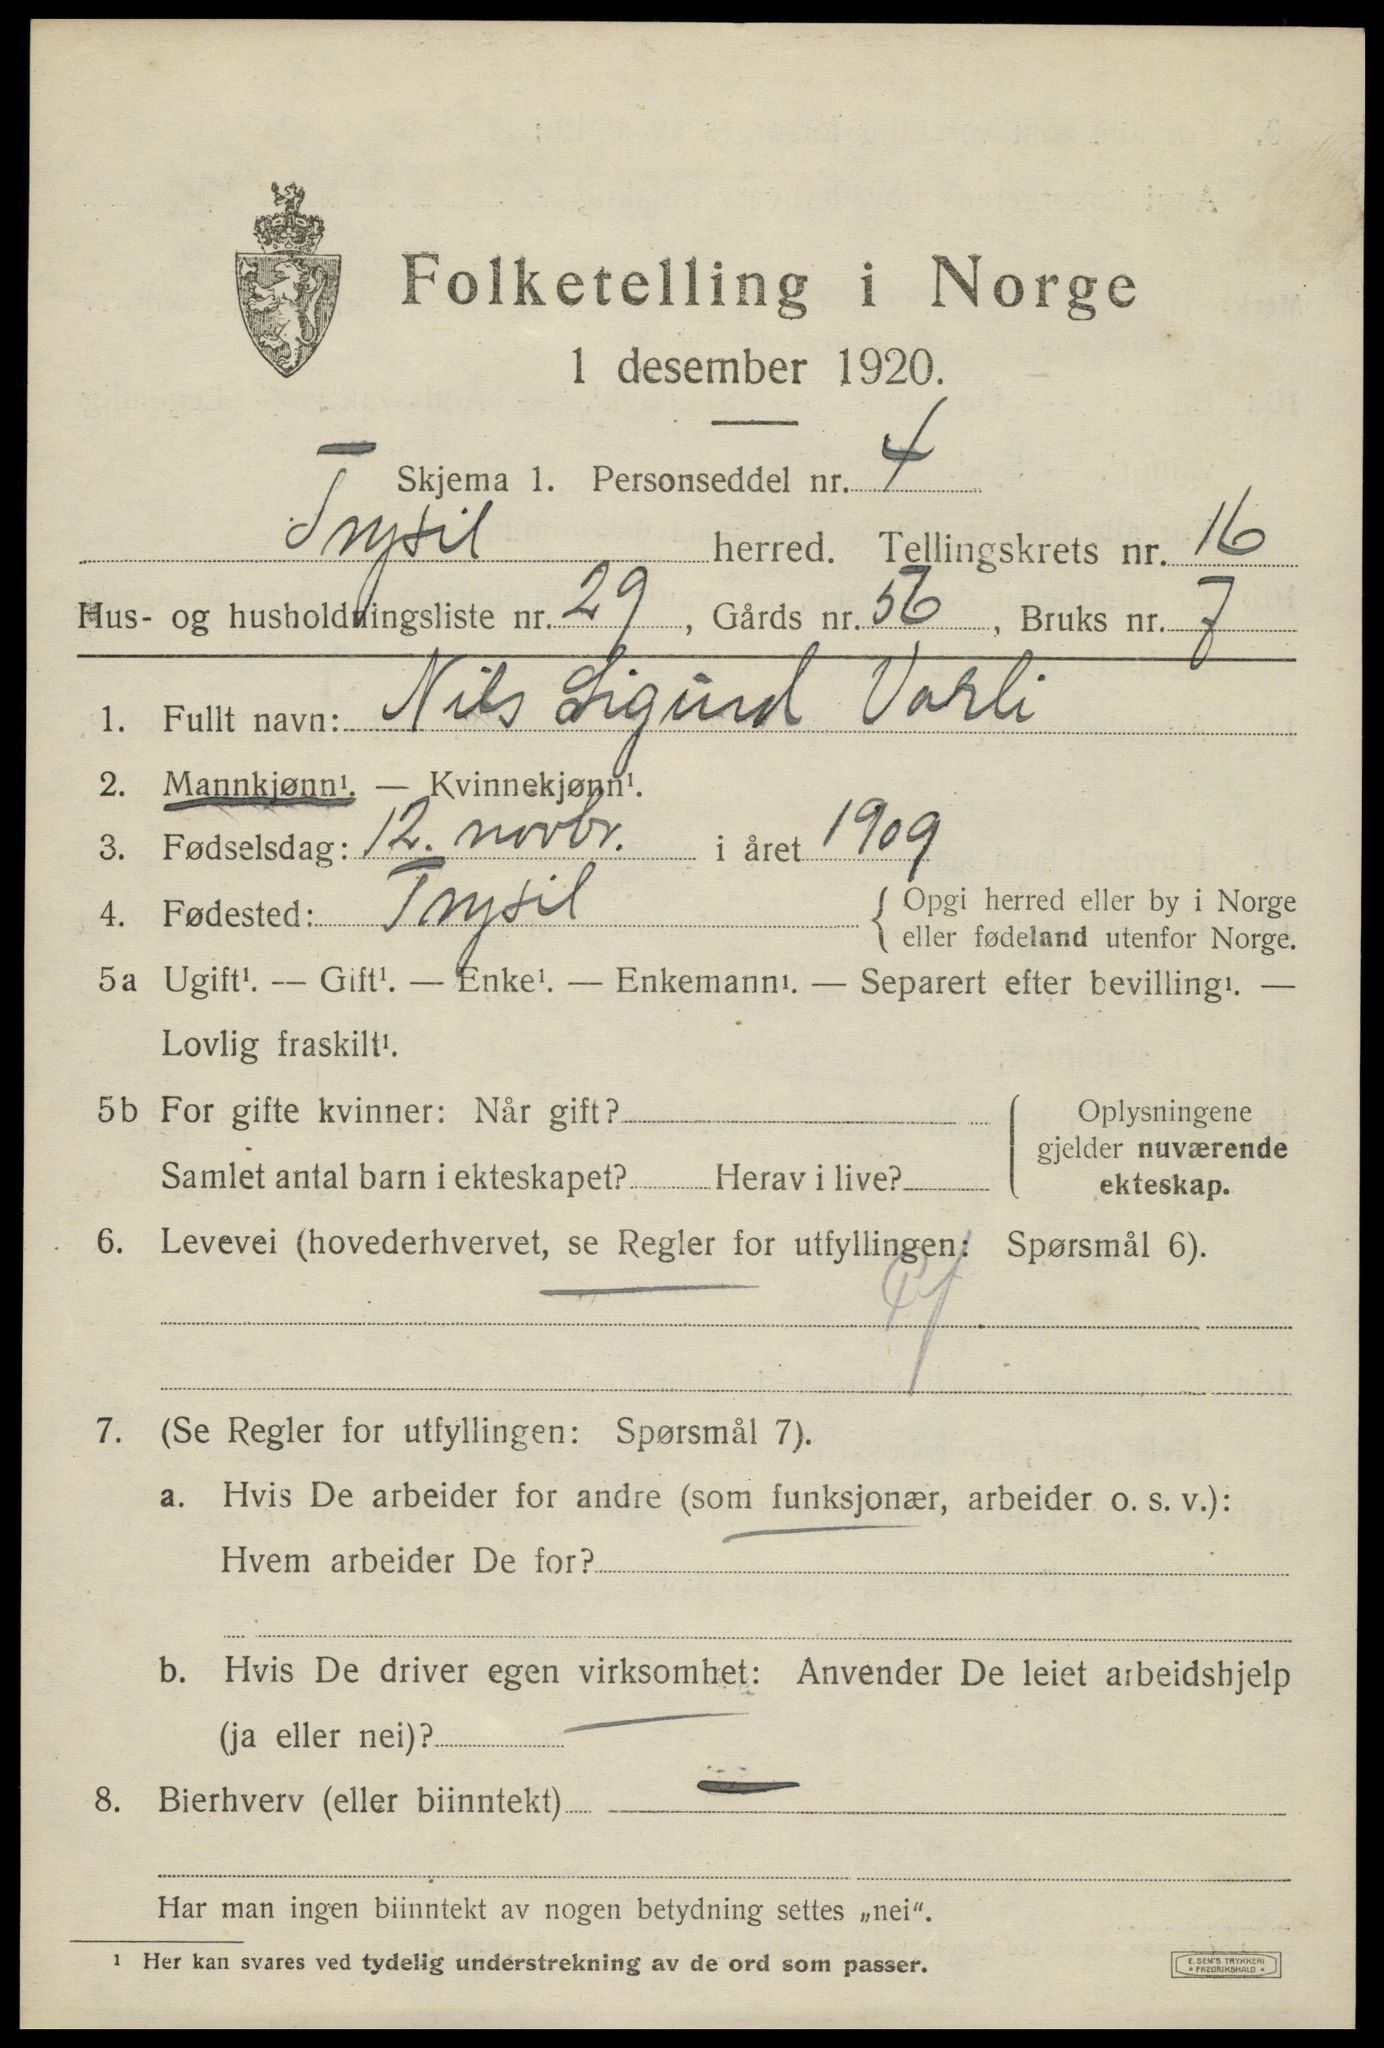 Folketelling i Norge
1 desember 1920.
Skjema 1. Personseddel nr. 4
Trysil herred. Tellingskrets nr. 16
Hus- og husholdningsliste nr. 29, Gårds nr. 56, Bruks nr. 7
1. Fullt navn: Nils Sigurd Varli
2. Mannkjønn¹. — Kvinnekjønn¹.
3. Fødselsdag: 12. novbr. i året 1909
4. Fødested: Trysil { Opgi herred eller by i Norge
eller fødeland utenfor Norge.
5a Ugift¹. — Gift¹. — Enke¹. — Enkemann¹. — Separert efter bevilling¹. —
Lovlig fraskilt¹.
5b For gifte kvinner: Når gift?
Samlet antal barn i ekteskapet? Herav i live?
Oplysningene
gjelder nuværende
ekteskap.
6. Levevei (hovederhvervet, se Regler for utfyllingen: Spørsmål 6).
7. (Se Regler for utfyllingen: Spørsmål 7).
a. Hvis De arbeider for andre (som funksjonær, arbeider o. s. v.):
Hvem arbeider De for?
b. Hvis De driver egen virksomhet: Anvender De leiet arbeidshjelp
(ja eller nei)?
8. Bierhverv (eller biinntekt) —
Har man ingen biinntekt av nogen betydning settes „nei“.
¹ Her kan svares ved tydelig understrekning av de ord som passer.
E. SEM'S TRYKKERI
• FREDRIKSHALD •